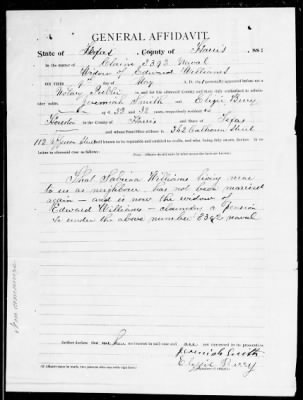 GENERAL AFFIDAVIT.
State of Texas, County of Harris, ss:
In the matter of Claim 8392 Naval
Widow of Edward Williams
ON THIS day of May, A. D. personally appeared before me
Notary Public in and for the aforesaid County, duly authorized to administer
oaths Jeremiah Smith and Elijie Berry
aged 33 and 32 years, respectively
Houston in the County of Harris and State of Texas
and whose Post-Office address is 362 Calhoun Street
112 Street well known to be reputable and entitled to credit, and who, being duly sworn, declare in
relation to aforesaid case as follows:
That Sabrina Williams living near
to us as neighbour, has not been married
again - and is now the widow of
Edward Williams - claiming a Pension
under the above number 8392 naval
further declare that no interest in said case and are not concerned in its prosecution.
Jeremiah Smith
Elijie Berry